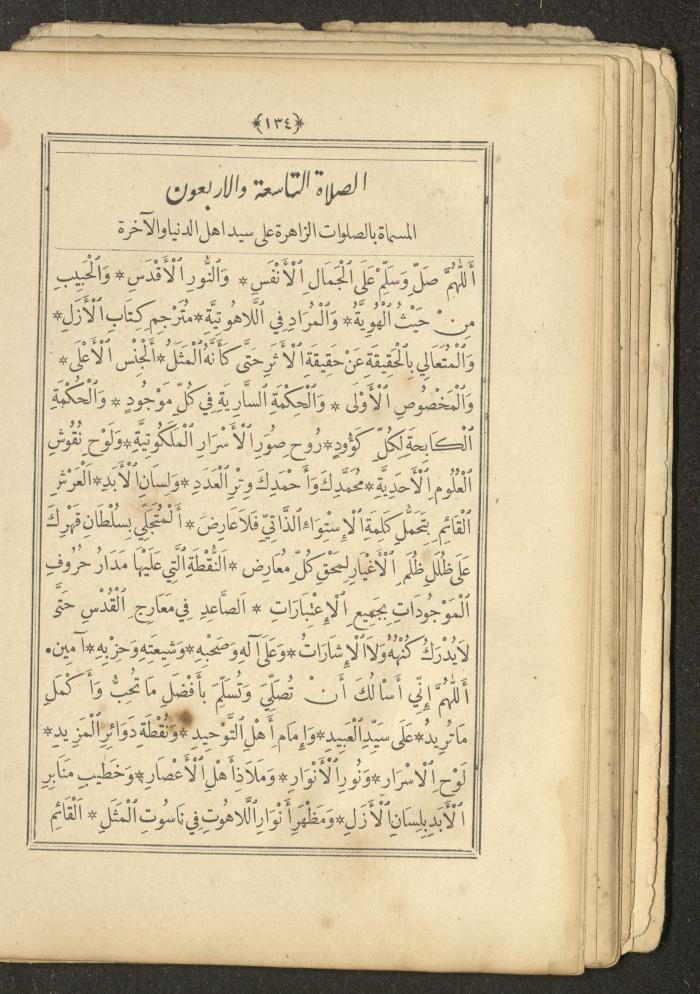 ﴿١٣٤﴾
الصلاة التاسعة والاربعون
المسماة بالصلوات الزاهرة على سيد اهل الدنيا والآخرة
أَللّٰهُمَّ صَلِّ وَسَلِّمْ عَلَى الْجَمَالِ الْأَنْفَسِ * وَالنُّورِ الْأَقْدَسِ * وَالْحَبِيبِ
مِنْ حَيْثُ الْهُوِيَّةُ * وَالْمُرَادِ فِي اللَّاهُوتِيَّةِ * مُتَرْجِمِ كِتَابِ الْأَزَلِ *
وَالْمُتَعَالِي بِالْحَقِيقَةِ عَنْ حَقِيقَةِ الْأَثَرِ حَتَّى كَأَنَّهُ الْمَثَلُ * أَلْجِنْسِ الْأَعْلَى *
وَالْمَخْصُوصِ الْأَوْلَى * وَالْحِكْمَةِ السَّارِيَةِ فِي كُلِّ مَوْجُودٍ * وَالْحَكَمَةِ
الْكَابِحَةِ لِكُلِّ كَؤُودٍ * رُوحِ صُوَرِ الْأَسْرَارِ الْمَلَكُوتِيَّةِ * وَلَوْحِ نُقُوشِ
الْعُلُومِ الْأَحَدِيَّةِ * مُحَمَّدِكَ وَأَحْمَدِكَ وِتْرِ الْعَدَدِ * وَلِسَانِ الْأَبَدِ * اَلْعَرْشِ
الْقَائِمِ بِتَحَمُّلِ كَلِمَةِ الْإِسْتِوَاءِ الذَّاتِيِّ فَلَا عَارِضَ * أَلْمُتَجَلِّي بِسُلْطَانِ قَهْرِكَ
عَلَى ظُلَلِ ظُلَمِ الْأَغْيَارِ لِمَحْقِ كُلِّ مُعَارِضٍ * اَلنُّقْطَةِ الَّتِي عَلَيْهَا مَدَارُ حُرُوفِ
الْمَوْجُودَاتِ بِجَمِيعِ الْإِعْتِبَارَاتِ * اَلصَّاعِدِ فِي مَعَارِجِ الْقُدْسِ حَتَّى
لَا يُدْرَكُ كُنْهُهُ وَلَا الْإِشَارَاتُ * وَعَلَى آلِهِ وَصَحْبِهِ * وَشِيعَتِهِ وَحِزْبِهِ * آمين.
أَللّٰهُمَّ إِنِّي أَسْأَلُكَ أَنْ تُصَلِّيَ وَتُسَلِّمَ بِأَفْضَلِ مَا تُحِبُّ وَأَكْمَلِ
مَا تُرِيدُ * عَلَى سَيِّدِ الْعَبِيدِ * وَإِمَامِ أَهْلِ التَّوْحِيدِ * وَنُقْطَةِ دَوَائِرِ الْمَزِيدِ *
لَوْحِ الْأَسْرَارِ * وَنُورِ الْأَنْوَارِ * وَمَلَاذِ أَهْلِ الْأَعْصَارِ * وَخَطِيبِ مَنَابِرِ
الْأَبَدِ بِلِسَانِ الْأَزَلِ * وَمَظْهَرِ أَنْوَارِ اللَّاهُوتِ فِي نَاسُوتِ الْمَثَلِ * اَلْقَائِمِ